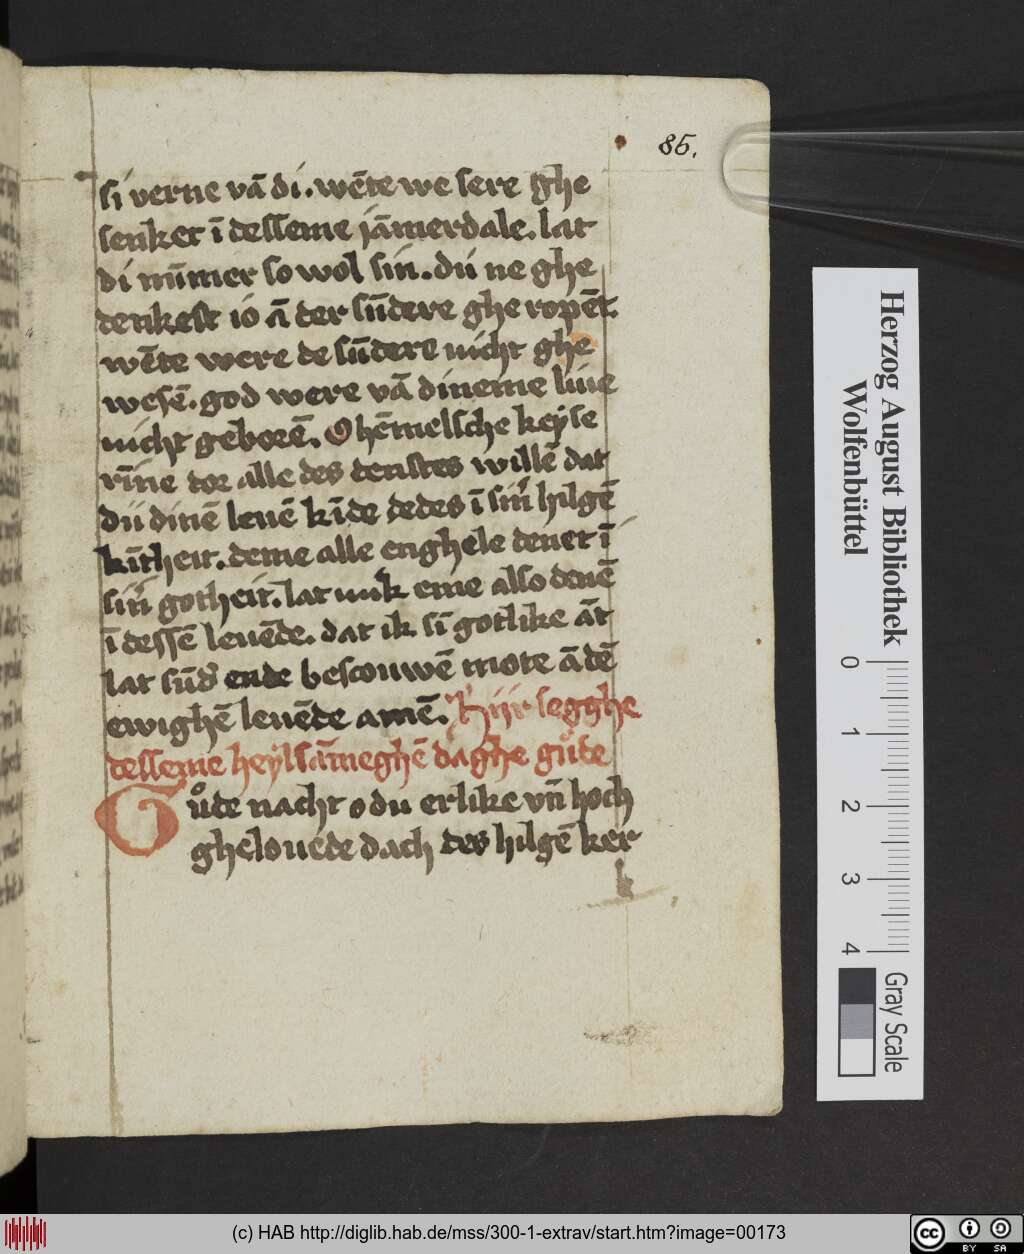 85.
si verne vā di. wēte we sere ghe
senket ī desseme jāmerdale. lat
di nūmer so wol sin. du ne ghe
denkest io ā der sūdere ghe ropēt.
wēte were de sūdere nicht ghe
wesē. god were vā dineme liue
nicht geborē. O hēmelsche keyse
rīne dor alle des denstes willē dat
du dinē leuē kīde dedes ī sin̄ hilgē
kītheit. deme alle enghele denet ī
sin̄ gotheit. lat mik eme also denē
ī dessē leuēde. dat ik sī gotlike āt
lat sūd' ende bescouwē mote ā dē
ewighē leuēde amē. Hijr segghe
desseme heylsāmeghē daghe gůde
Gůde nacht o du erlike vn̄ hoch
ghelouede dach des hilgē ker
Herzog August Bibliothek
Wolfenbüttel
0 1 2 3 4
Gray Scale
(c) HAB http://diglib.hab.de/mss/300-1-extrav/start.htm?image=00173
cc BY SA